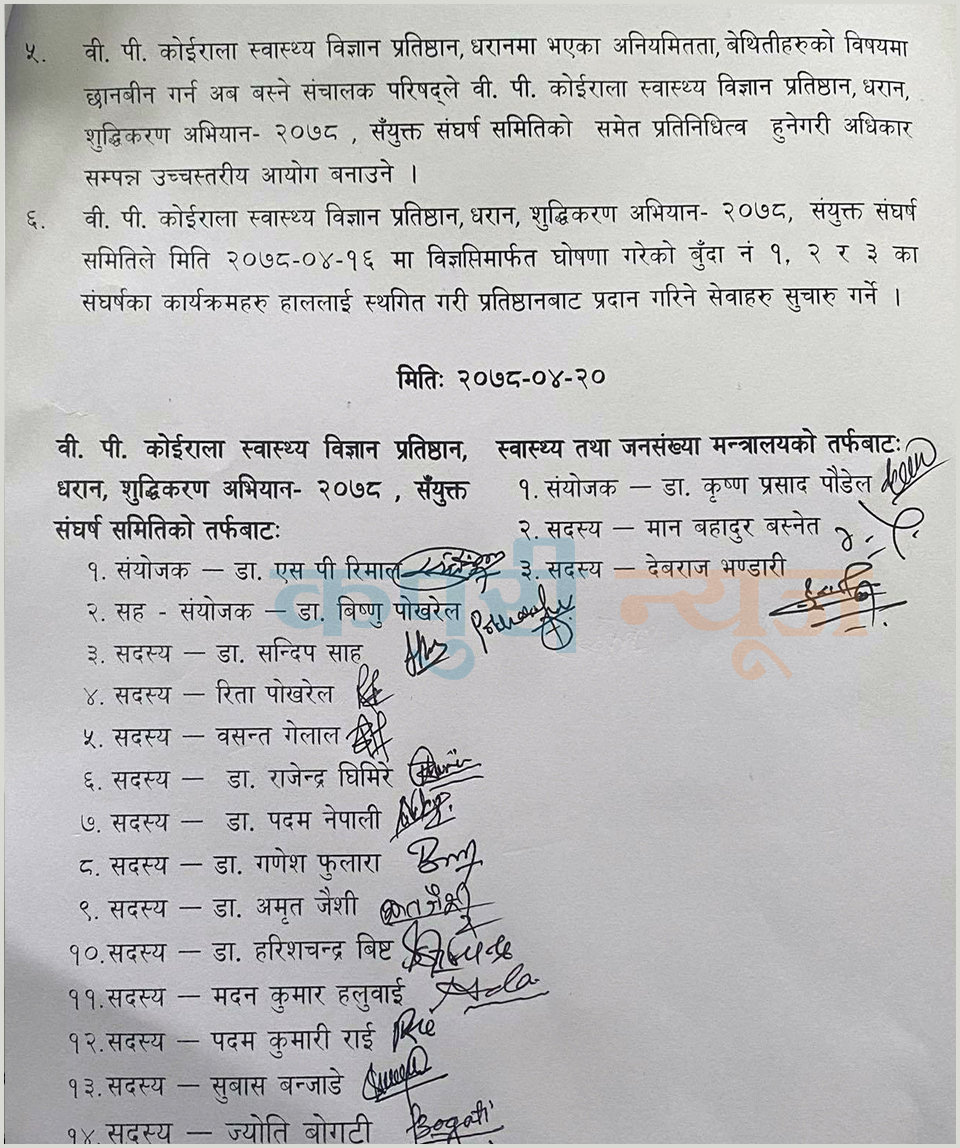 ५. वी. पी. कोईराला स्वास्थ्य विज्ञान प्रतिष्ठान, धरानमा भएका अनियमितता, बेथितीहरुको विषयमा
छानबीन गर्न अब बस्ने संचालक परिषद्ले वी. पी. कोईराला स्वास्थ्य विज्ञान प्रतिष्ठान, धरान,
शुद्धिकरण अभियान- २०७८ , सँयुक्त संघर्ष समितिको समेत प्रतिनिधित्व हुनेगरी अधिकार
सम्पन्न उच्चस्तरीय आयोग बनाउने ।
६. वी. पी. कोईराला स्वास्थ्य विज्ञान प्रतिष्ठान, धरान, शुद्धिकरण अभियान- २०७८, संयुक्त संघर्ष
समितिले मिति २०७८-०४-१६ मा विज्ञप्तिमार्फत घोषणा गरेको बुँदा नं १, २ र ३ का
संघर्षका कार्यक्रमहरु हाललाई स्थगित गरी प्रतिष्ठानबाट प्रदान गरिने सेवाहरु सुचारु गर्ने ।
मितिः २०७८-०४-२०
वी. पी. कोईराला स्वास्थ्य विज्ञान प्रतिष्ठान,
धरान, शुद्धिकरण अभियान- २०७८ , सँयुक्त
संघर्ष समितिको तर्फबाटः
१. संयोजक – डा. एस पी रिमाल
२. सह - संयोजक – डा. बिष्णु पोखरेल
३. सदस्य – डा. सन्दिप साह
४. सदस्य – रिता पोखरेल
५. सदस्य – वसन्त गेलाल
६. सदस्य – डा. राजेन्द्र घिमिरे
७. सदस्य – डा. पदम नेपाली
८. सदस्य – डा. गणेश फुलारा
९. सदस्य – डा. अमृत जैशी
१०.सदस्य – डा. हरिशचन्द्र बिष्ट
११.सदस्य – मदन कुमार हलुवाई
१२.सदस्य – पदम कुमारी राई
१३.सदस्य – सुबास बन्जाडे
१४.सदस्य – ज्योति बोगटी Bogati
स्वास्थ्य तथा जनसंख्या मन्त्रालयको तर्फबाटः
१. संयोजक – डा. कृष्ण प्रसाद पौडेल
२. सदस्य – मान बहादुर बस्नेत
३. सदस्य – देबराज भण्डारी
न्यूज